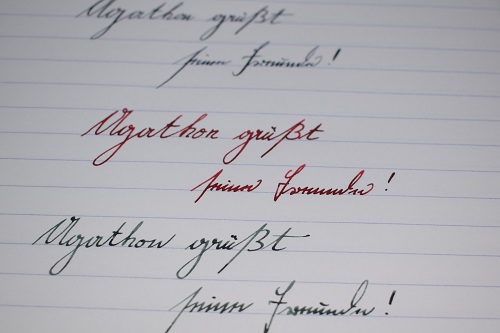 Agathon grüßt
seine Freunde!
Agathon grüßt
seine Freunde!
Agathon grüßt
seine Freunde!